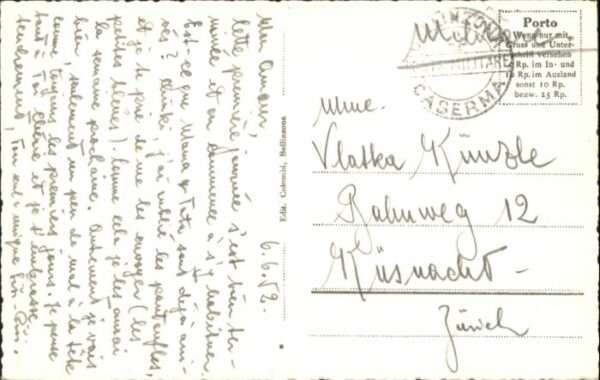 6.6.52.
Mon amour,
cette première journée s'est bien ter-
minée et on commence à s'y habituer.
Est-ce que Mama & Tata sont déjà arri-
vés? Chinki, j'ai oublié les pantoufles,
et je te prie de me les envoyer (les
petites bleues), comme cela je les aurai
la semaine prochaine. Autrement je vais
bien, seulement un peu de mal à la tête
comme toujours les premiers jours. Je pense
tout à Toi chérie et je t'embrasse
tendrement, Ton seul & unique
Edit. Colombi, Bellinzona
CASERMA
Porto
Wenn nur mit
Gruss und Unter-
schrift versehen
Rp. im In- und
10 Rp. im Ausland
sonst 10 Rp.
bezw. 25 Rp.
Mme.
Vlatka Künzle
Bahnweg 12
Küsnacht -
Zürich